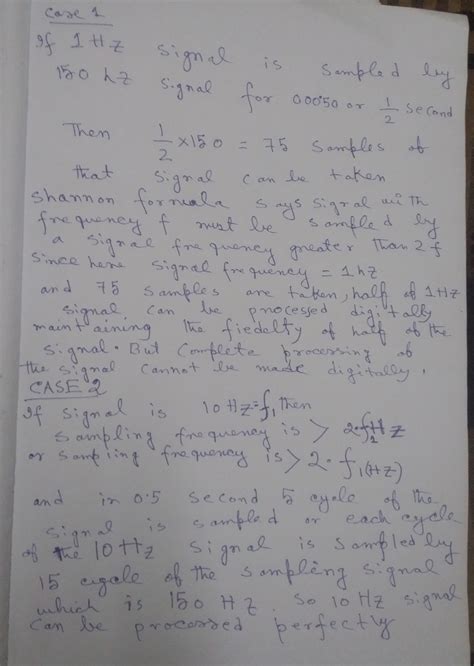 Case 1
If 1 Hz signal is sampled by
150 hz signal for 00:0:50 or 1/2 second
Then 1/2 x 150 = 75 samples of
that signal can be taken
Shannon formula says signal with
frequency f must be sampled by
a signal frequency greater than 2f
since here signal frequency = 1hz
and 75 samples are taken, half of 1Hz
signal can be processed digitally
maintaining the fiedelty of half of the
signal. But complete processing of
the signal cannot be made digitally.
CASE 2
If signal is 10 Hz = f1 then
sampling frequency is > 2.f1 Hz
or sampling frequency is > 2.f1(Hz)
and in 0.5 second 5 cycle of the
signal is sampled or each cycle
of the 10 Hz signal is sampled by
15 cycle of the sampling signal
which is 150 Hz. So 10 Hz signal
can be processed perfectly